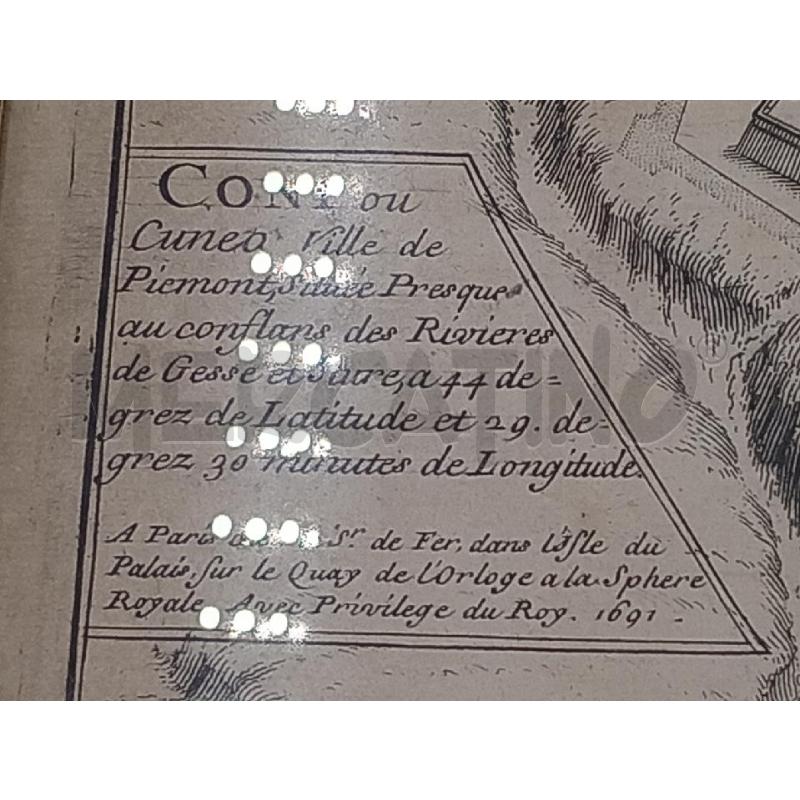 CONI ou
Cuneo Ville de
Piemont, Située Presque
au conflans des Rivieres
de Gesse et Sture, a 44 de=
grez de Latitude et 29. de=
grez 30 minutes de Longitude.
A Paris Sr. de Fer, dans l'Isle du
Palais, sur le Quay de l'Orloge a la Sphere
Royale Avec Privilege du Roy. 1691.
MERCATINO